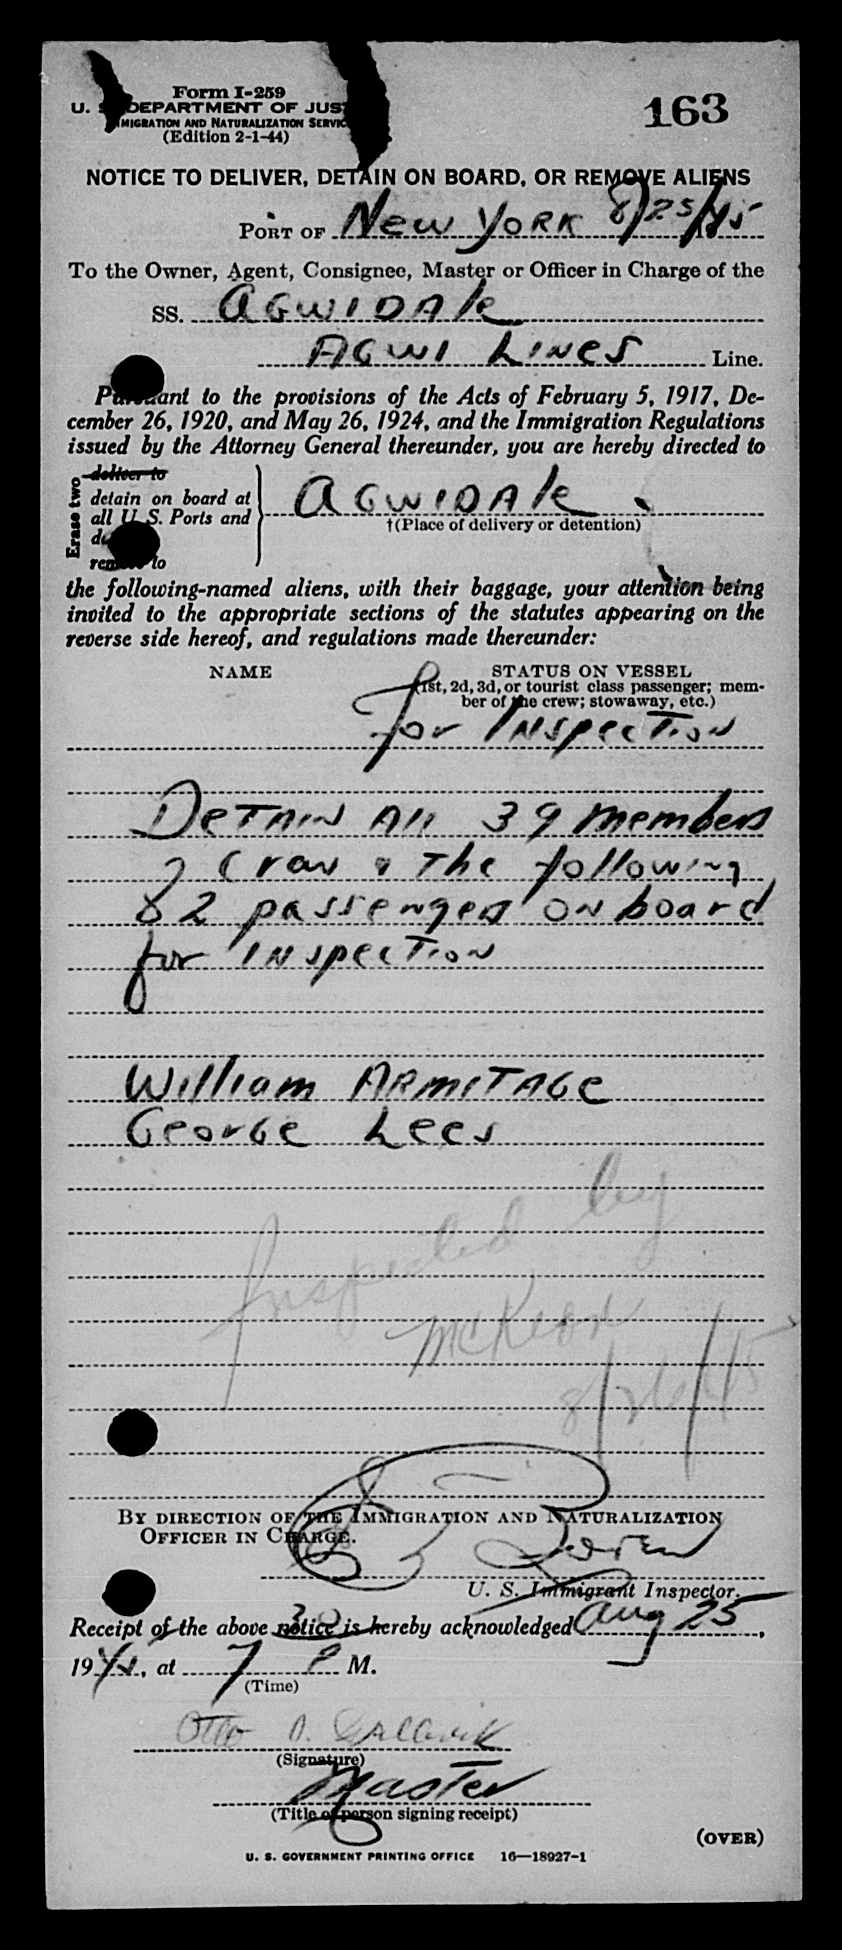 Form I-259
U. S. DEPARTMENT OF JUST
IMMIGRATION AND NATURALIZATION SERVIC
(Edition 2-1-44)
163
NOTICE TO DELIVER, DETAIN ON BOARD, OR REMOVE ALIENS
PORT OF New York 8/25/45
To the Owner, Agent, Consignee, Master or Officer in Charge of the
SS. AGWIDALE
AGWI LINES Line.
Pursuant to the provisions of the Acts of February 5, 1917, De-
cember 26, 1920, and May 26, 1924, and the Immigration Regulations
issued by the Attorney General thereunder, you are hereby directed to
Erase two
deliver to
detain on board at
all U. S. Ports and
remove to
AGWIDALE
†(Place of delivery or detention)
the following-named aliens, with their baggage, your attention being
invited to the appropriate sections of the statutes appearing on the
reverse side hereof, and regulations made thereunder:
NAME
STATUS ON VESSEL
(1st, 2d, 3d, or tourist class passenger; mem-
ber of the crew; stowaway, etc.)
for Inspection
Detain All 39 members
of Crew & The following
2 passengers on board
for Inspection
William Armitage
George Lees
Inspected by
McKeon
8/26/45
BY DIRECTION OF THE IMMIGRATION AND NATURALIZATION
OFFICER IN CHARGE.
U. S. Immigrant Inspector.
Receipt of the above notice is hereby acknowledged Aug 25,
1945, at 7 30 P M.
(Time)
Otto
(Signature)
Master
(Title of person signing receipt)
(OVER)
U. S. GOVERNMENT PRINTING OFFICE 16—18927-1